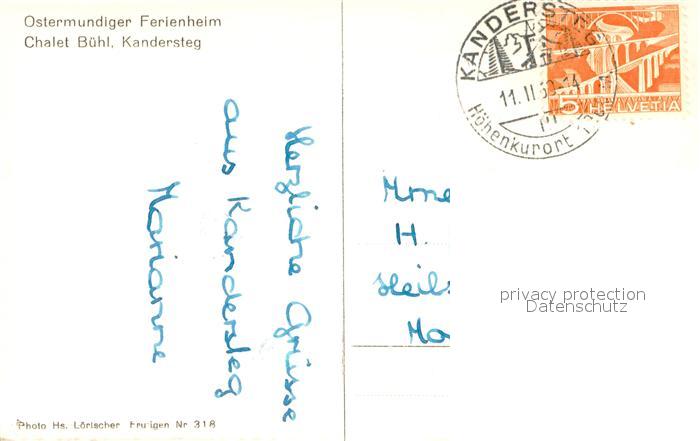 Ostermundiger Ferienheim
Chalet Bühl, Kandersteg
Herzliche Grüsse
aus Kandersteg
Marianne
KANDERSTEG
11. II
Höhenkurort
5 HELVETIA
H.
privacy protection
Datenschutz
Photo Hs. Lörtscher Frutigen Nr 318